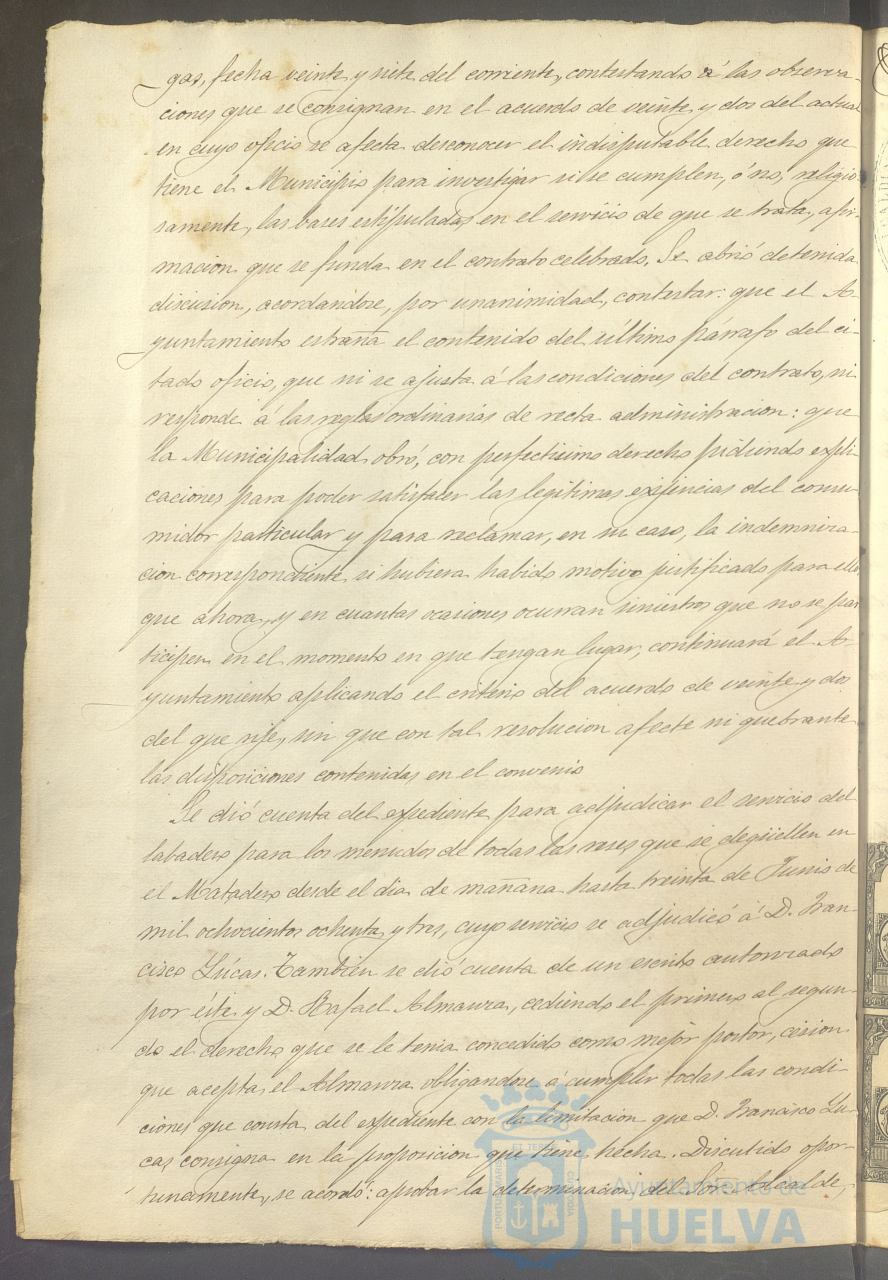 gas, fecha veinte y siete del corriente, contestando á las observa-
ciones que se consignan en el acuerdo de veinte y dos del actual
en cuyo oficio se afecta desconocer el indisputable derecho que
tiene el Municipio para investigar si se cumplen, ó no, religio-
samente, las bases estipuladas en el servicio de que se trata, afir-
macion que se funda en el contrato celebrado. Se abrió detenida
discusion, acordándose, por unanimidad, contestar: que el A-
yuntamiento estraña el contenido del último párrafo del ci-
tado oficio, que ni se ajusta á las condiciones del contrato, ni
responde á las reglas ordinarias de recta administracion: que
la Municipalidad obró, con perfectisimo derecho pidiendo espli-
caciones para poder satisfacer las legítimas exijencias del consu-
midor particular y para reclamar, en su caso, la indemniza-
cion correspondiente si hubiera habido motivo justificado para ello
que ahora, y en cuantas ocasiones ocurran siniestros que no se par
ticipen en el momento en que tengan lugar, continuará el A-
yuntamiento aplicando el criterio del acuerdo de veinte y dos
del que rije, sin que con tal resolucion afecte ni quebrante
las disposiciones contenidas en el convenio
Se dió cuenta del espediente para adjudicar el servicio del
labadero para los menudos de todas las reses que se degüellen en
el Matadero desde el dia de mañana hasta treinta de Junio de
mil ochocientos ochenta y tres, cuyo servicio se adjudicó á D. Fran-
cisco Lúcas. Tambien se dió cuenta de un escrito autorizado
por éste y D. Rafael Almanza, cediendo el primero al segun-
do el derecho que se le tenia concedido como mejor postor, cision
que acepta el Almanza obligandose á cumplir todas las condi-
ciones que consta del espediente con la limitacion que D. Francisco Lu-
cas consigna en la proposicion que tiene hecha. Discutido opor-
tunamente, se acordó: aprobar la determinacion del Sor. Alcalde,
Ayuntamiento de
HUELVA